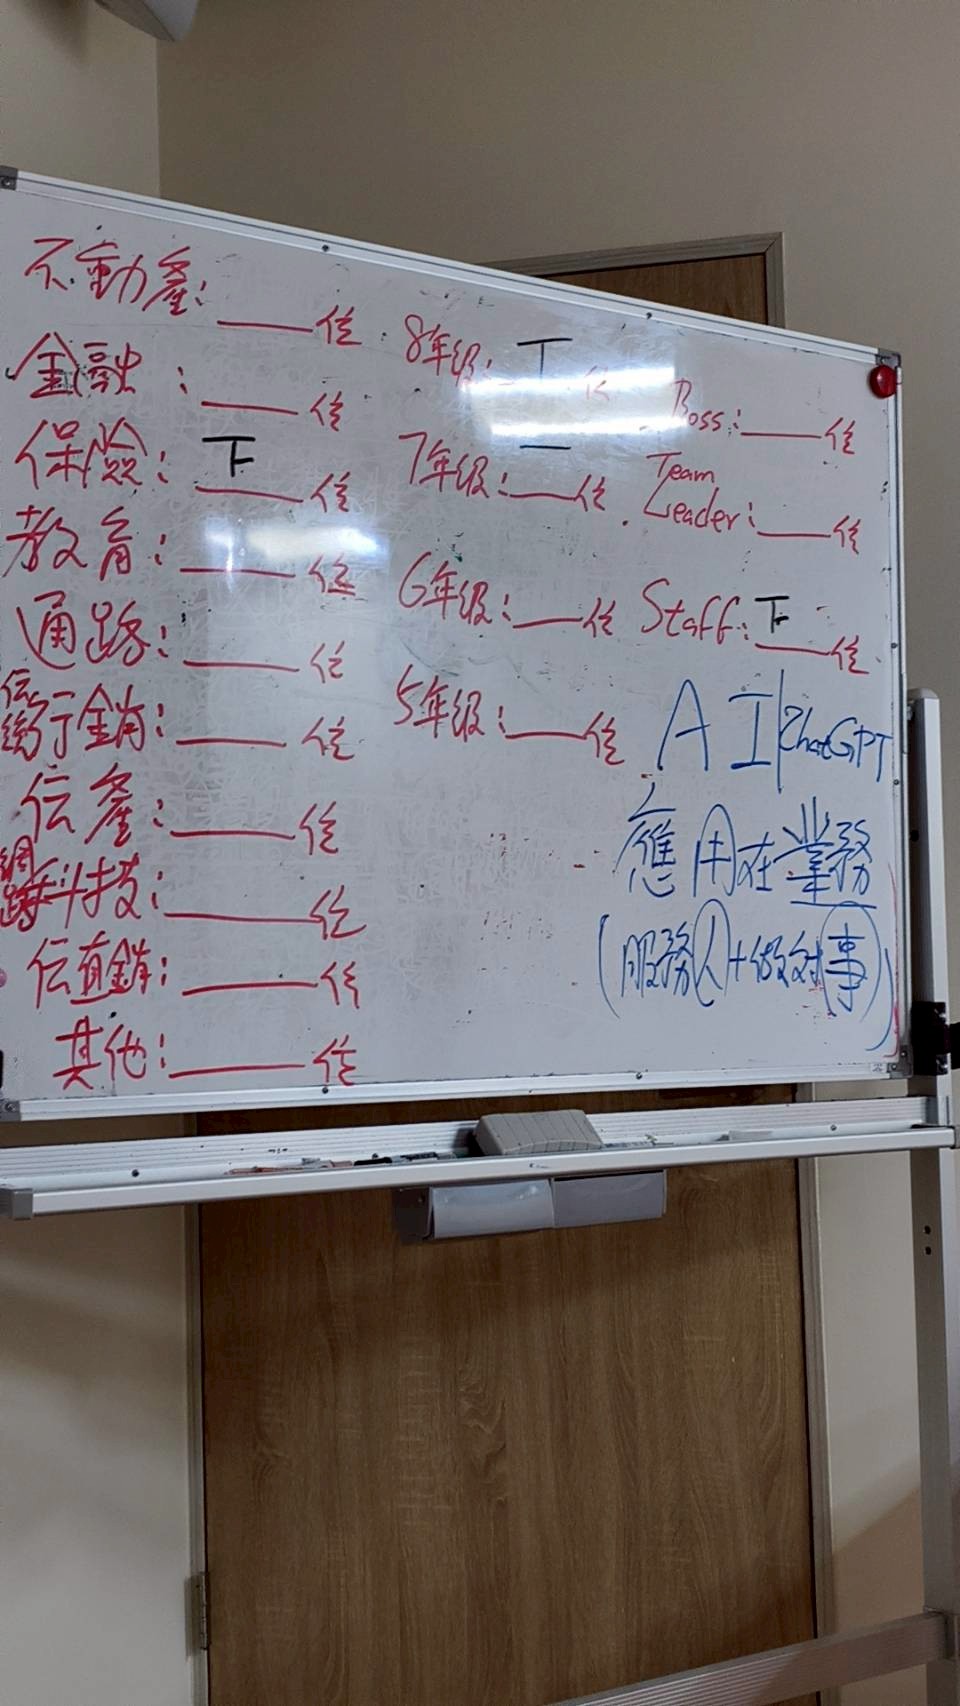 不動產：____位
金融：____位
保險：下____位
教育：____位
通路：____位
傳統行銷：____位
伝產：____位
網路科技：____位
伝直銷：____位
其他：____位
8年級：丅 位
7年級：一____位
6年級：____位
5年級：____位
Boss：____位
Team
Leader：____位
Staff：下____位
AI|ChatGPT
應用在業務
(服務人+做對事)